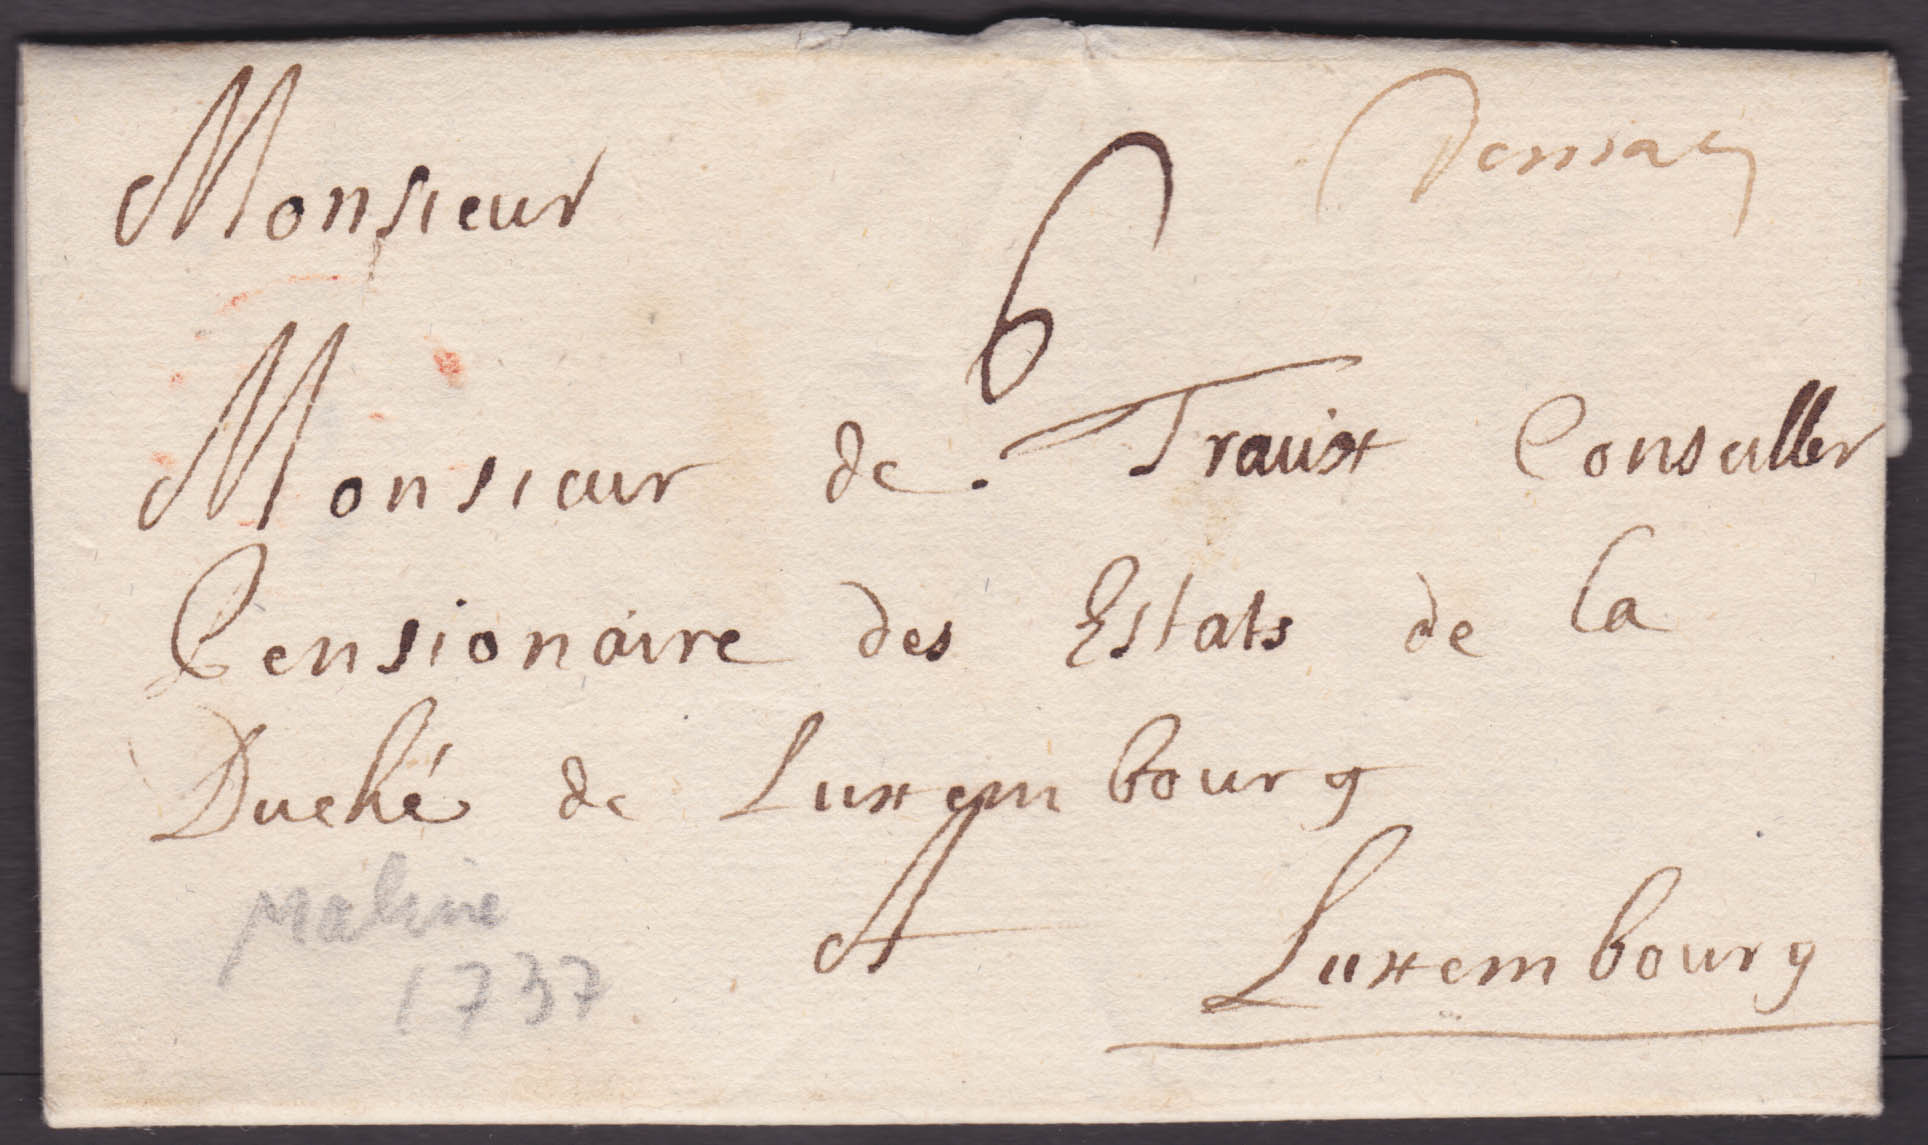 Monsieur
6
Monsieur de Traux Conseiller
Pensionaire des Estats de la
Duché de Luxembourg
A
Luxembourg
Maline
1737